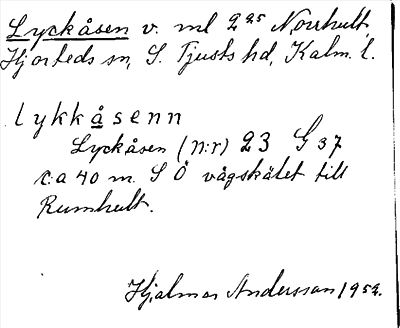 Lyckåsen v. ml 2²²⁵ Norrhult,
Hjorteds sn, S. Tjusts hd, Kalm. l.
lykkåsenn
Lyckåsen (n:r) 23 G 37
c:a 40 m. S Ö vägskälet till
Rumhult.
Hjalmar Andersson 1952.